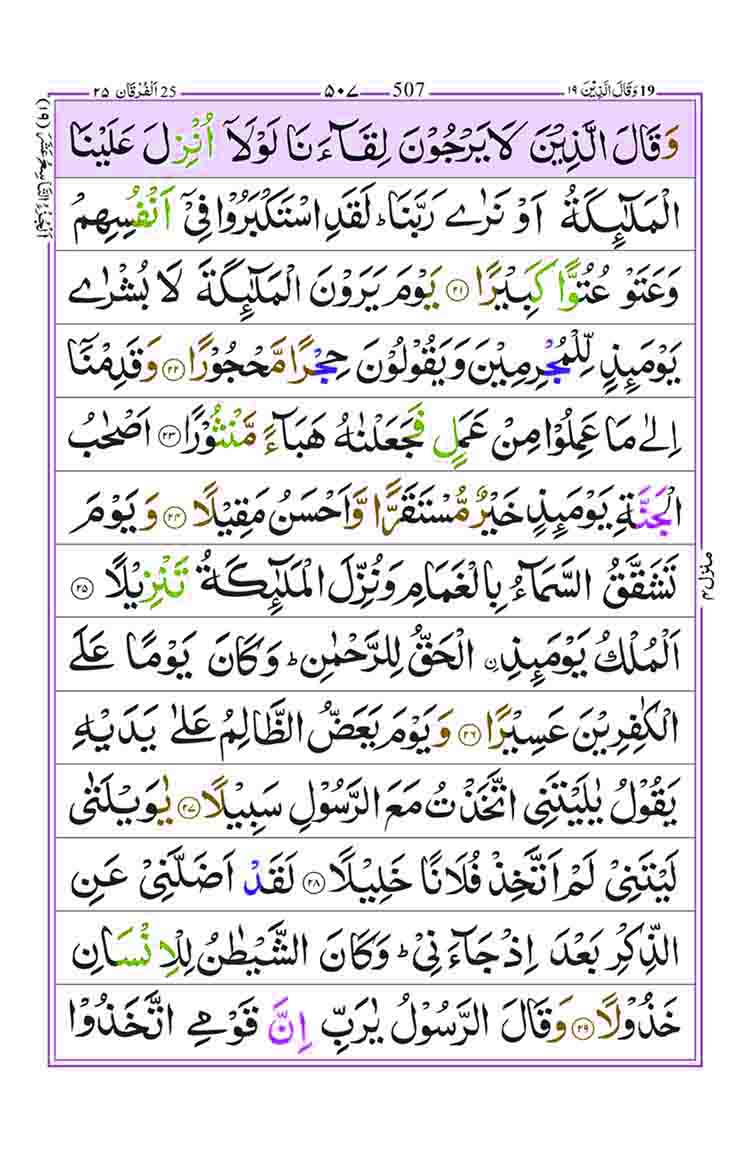 19 وَقَالَ الَّذِيْنَ ١٩ 507 ۵۰۷ 25 اَلْفُرْقَان ۲۵
وَقَالَ الَّذِيْنَ لَا يَرْجُوْنَ لِقَآءَنَا لَوْلَاۤ اُنْزِلَ عَلَيْنَا
الْمَلٰٓئِكَةُ اَوْ نَرٰى رَبَّنَا ؕ لَقَدِ اسْتَكْبَرُوْا فِىْۤ اَنْفُسِهِمْ
وَعَتَوْ عُتُوًّا كَبِيْرًا ﴿۲۱﴾ يَوْمَ يَرَوْنَ الْمَلٰٓئِكَةَ لَا بُشْرٰى
يَوْمَئِذٍ لِّلْمُجْرِمِيْنَ وَيَقُوْلُوْنَ حِجْرًا مَّحْجُوْرًا ﴿۲۲﴾ وَقَدِمْنَاۤ
اِلٰى مَا عَمِلُوْا مِنْ عَمَلٍ فَجَعَلْنٰهُ هَبَآءً مَّنْثُوْرًا ﴿۲۳﴾ اَصْحٰبُ
الْجَنَّةِ يَوْمَئِذٍ خَيْرٌ مُّسْتَقَرًّا وَّاَحْسَنُ مَقِيْلًا ﴿۲۴﴾ وَيَوْمَ
تَشَقَّقُ السَّمَآءُ بِالْغَمَامِ وَنُزِّلَ الْمَلٰٓئِكَةُ تَنْزِيْلًا ﴿۲۵﴾
اَلْمُلْكُ يَوْمَئِذِ ۨ الْحَقُّ لِلرَّحْمٰنِ ؕ وَكَانَ يَوْمًا عَلَى
الْكٰفِرِيْنَ عَسِيْرًا ﴿۲۶﴾ وَيَوْمَ يَعَضُّ الظَّالِمُ عَلٰى يَدَيْهِ
يَقُوْلُ يٰلَيْتَنِى اتَّخَذْتُ مَعَ الرَّسُوْلِ سَبِيْلًا ﴿۲۷﴾ يٰوَيْلَتٰى
لَيْتَنِىْ لَمْ اَتَّخِذْ فُلَانًا خَلِيْلًا ﴿۲۸﴾ لَقَدْ اَضَلَّنِىْ عَنِ
الذِّكْرِ بَعْدَ اِذْ جَآءَنِىْ ؕ وَكَانَ الشَّيْطٰنُ لِلْاِنْسَانِ
خَذُوْلًا ﴿۲۹﴾ وَقَالَ الرَّسُوْلُ يٰرَبِّ اِنَّ قَوْمِى اتَّخَذُوْا
اَلْجُزْءُ التَّاسِعُ عَشَرَ (۱۹)
منزل ۴